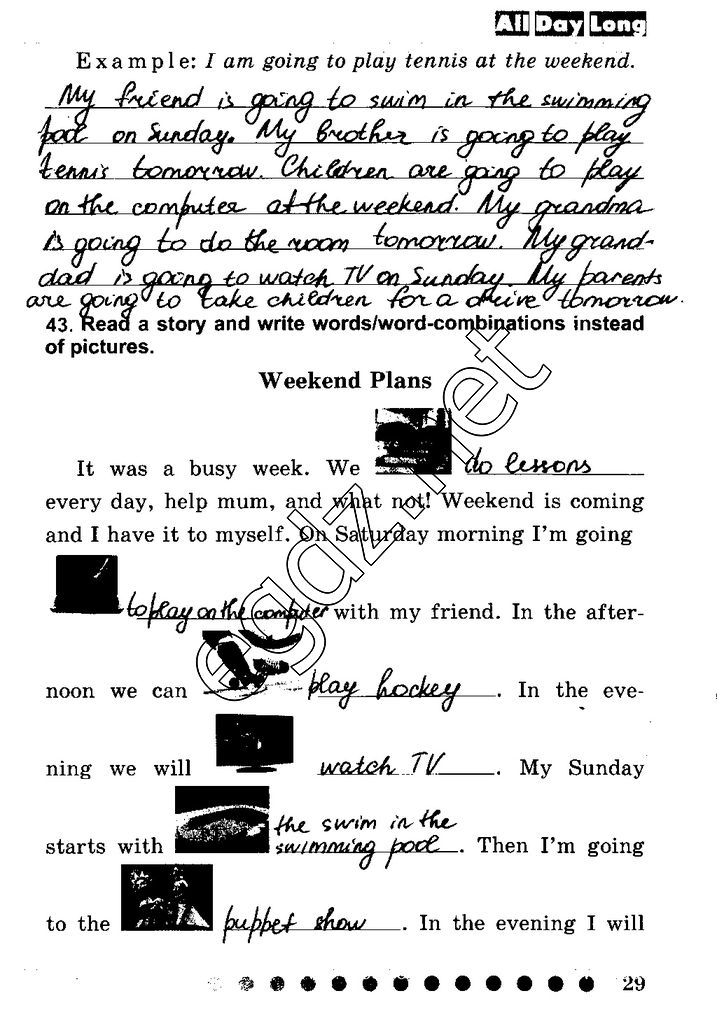 All Day Long
Example: I am going to play tennis at the weekend.
My friend is going to swim in the swimming
pool on Sunday. My brother is going to play
tennis tomorrow. Children are going to play
on the computer at the weekend. My grandma
is going to do the room tomorrow. My grand-
dad is going to watch TV on Sunday. My parents
are going to take children for a drive tomorrow.
43. Read a story and write words/word-combinations instead
of pictures.
Weekend Plans
It was a busy week. We do lessons
every day, help mum, and what not! Weekend is coming
and I have it to myself. On Saturday morning I'm going
to play on the computer with my friend. In the after-
noon we can play hockey. In the eve-
ning we will watch TV. My Sunday
the swim in the
starts with swimming pool. Then I'm going
to the puppet show. In the evening I will
29
egdz.net